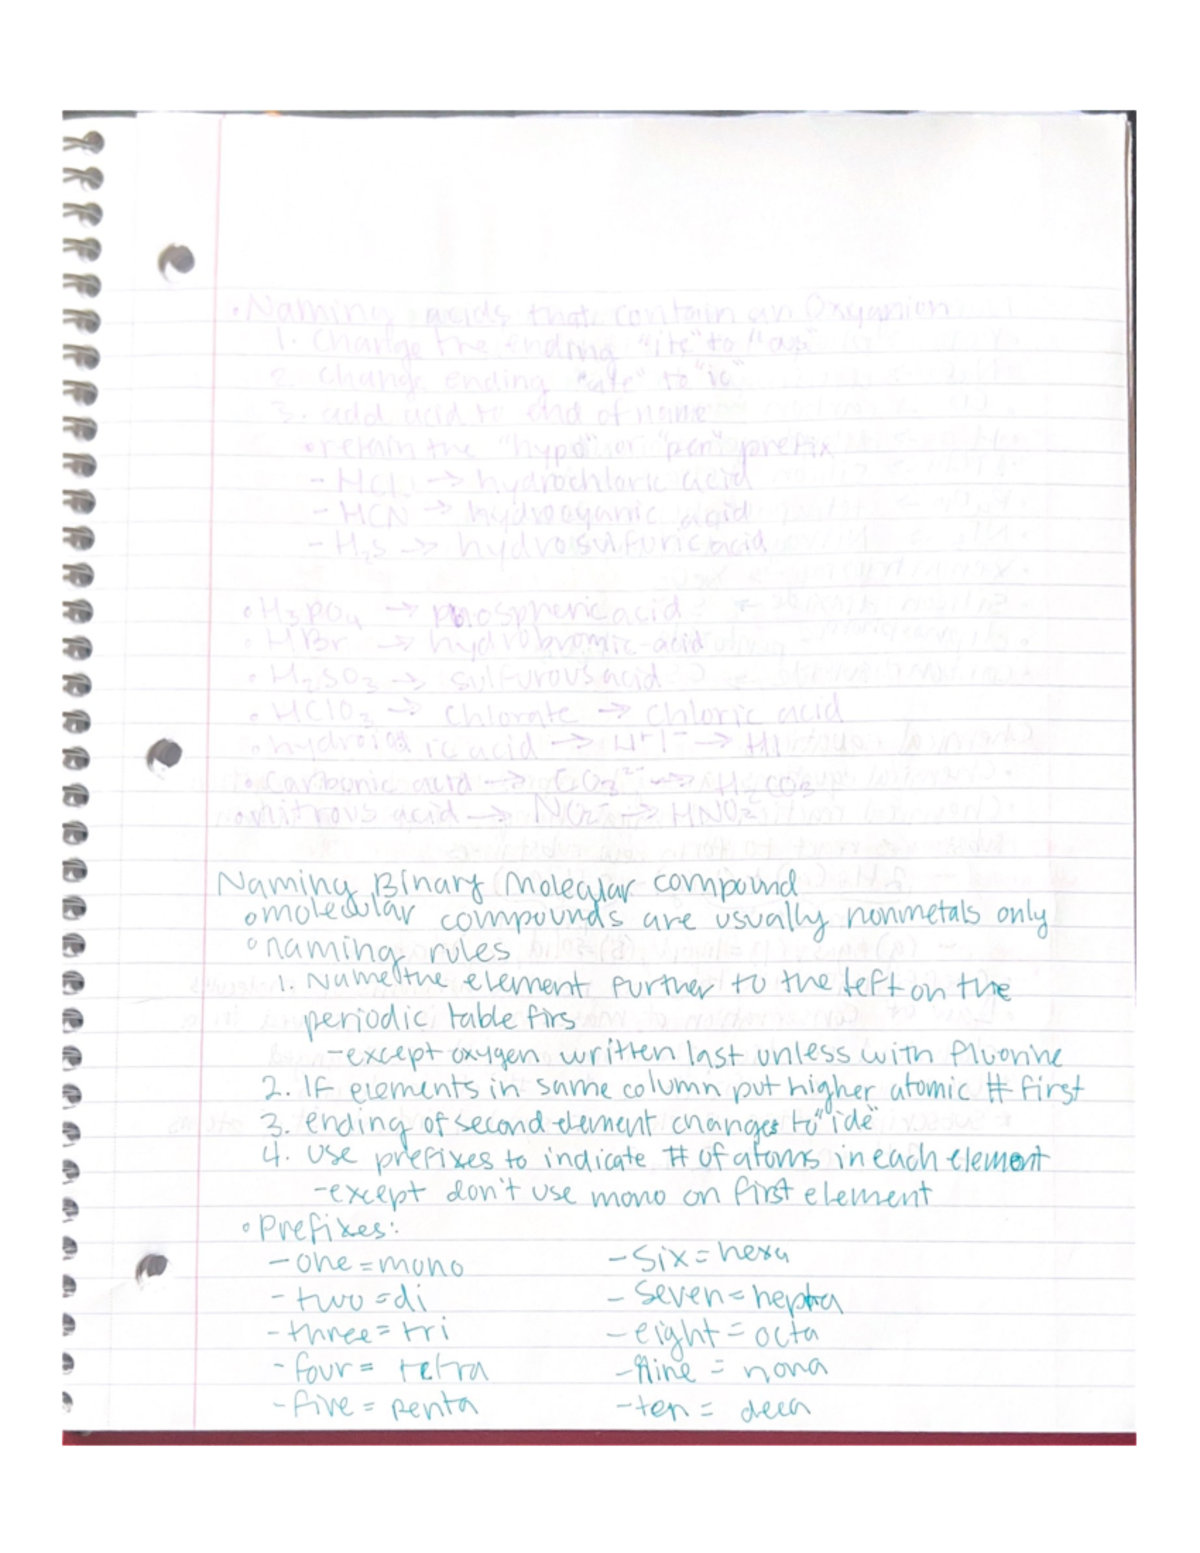 •Naming acids that contain an Oxyanion
1. Change the ending "ite" to "ous"
2. Change ending "ate" to "ic"
3. add acid to end of name
•retain the "hypo" or "per" prefix
- HCl → hydrochloric acid
- HCN → hydrocyanic acid
- H₂S → hydrosulfuric acid
• H₃PO₄ → phosphoric acid
• HBr → hydrobromic-acid
• H₂SO₃ → sulfurous acid
• HClO₃ → Chlorate → chloric acid
• hydroiodic acid → H⁺I⁻ → HI
• Carbonic acid → CO₃²⁻ → H₂CO₃
nitrous acid → → HNO₂
Naming Binary Molecular compound
o molecular compounds are usually nonmetals only
o naming rules
1. Name the element further to the left on the
periodic table firs
-except oxygen written last unless with fluorine
2. If elements in same column put higher atomic # first
3. ending of second element changes to "ide"
4. Use prefixes to indicate # of atoms in each element
-except don't use mono on first element
• Prefixes:
- one = mono - six = hexa
- two = di - seven = hepta
- three = tri - eight = octa
- four = tetra - nine = nona
- five = penta - ten = deca